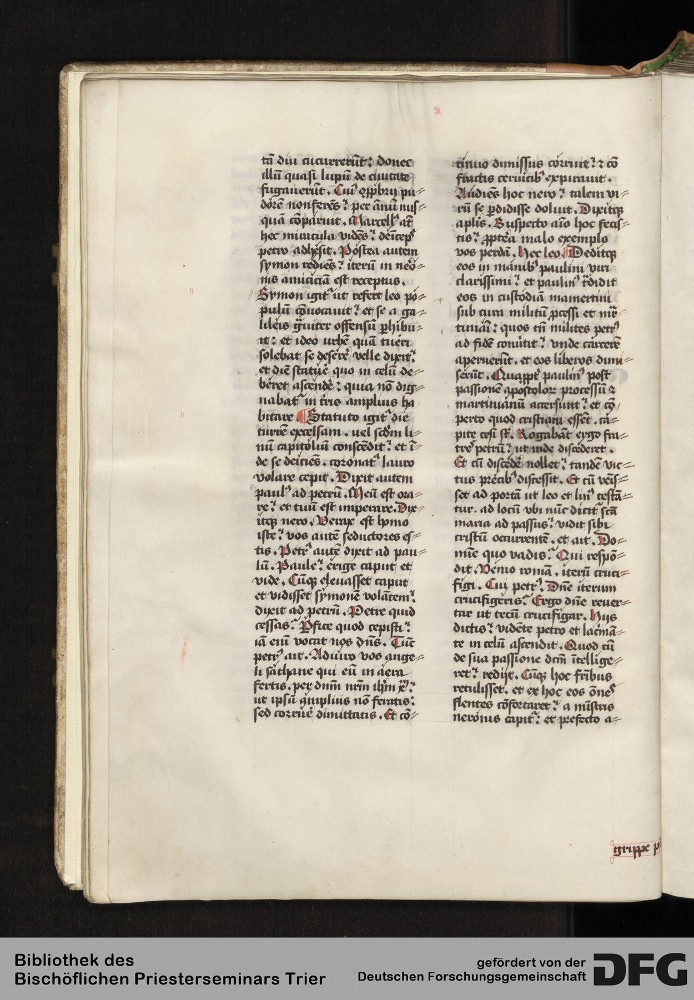 tā diu cucurrerūt: donec
illū quasi lupū de ciuitate
fugauerūt. Cuiꝰ opprobrij pu=
dorē non ferēs: per ānū nus=
quā cōparuit. Marcellꝰ aūt
hec miracula vidēs: deīceps
petro adhesit. Postea autem
symon rediēs: iterū in nero=
nis amiciciā est receptus.
Symon igitˀ ut refert leo po=
pulū cōuocauit: et se a ga=
lileis grauiter offensū perhibu=
it: et ideo vrbē quā tueri
solebat se deserē velle dixit:
et diē statuē quo in celū de=
beret ascendē: quia nō dig=
nabatˀ in tris amplius ha
bitare Statuto igitˀ die
turrē excelsam. vel scd̄m li=
nū capitoliū conscēdit: et ī=
de se deiciēs. coronatꝰ lauro
volare cepit. Dixit autem
paulꝰ ad petrū. Meū est ora=
re: et tuū est imperare. Dix=
itque nero. Verax est homo
iste: vos autē seductores es=
tis. Petrꝰ autē dixit ad pau=
lū. Paule: erige caput et
vide. Cūque eleuasset caput
et vidisset symonē volātem:
dixit ad petrū. Petre quid
cessas: Perfice quod cepisti:
iā eiū vocat nos dn̄s. Tūc
petrꝰ ait. Adiuro vos ange=
li sathane qui eū in aera
fertis. per dn̄m nr̄m ihm̄ xp̄:
ut ipsū amplius nō feratis:
sed corruē dimittatis. Et cō=
tinuo dimissus corruit: et cō
fractis ceruicibꝰ expirauit.
Audiēs hoc nero: talem vi=
rū se perdidisse doluit. Dixitque
aplis. Suspecto aīo hoc fecis=
tis: propterea malo exemplo
vos perdā. Hec leo. Deditque
eos in manibꝰ paulini viri
clarissimi: et paulinꝰ tradidit
eos in custodiā mamertini
sub cura militū processi et mar=
tiniāi: quos tn̄ milites petrꝰ
ad fidē conuertit: vnde carcerē
aperuerūt. et eos liberos dimi=
serūt. Quapropter paulinꝰ post
passionē apostolorum processū et
martinianū accersiuit: et cō=
perto quod cristiani essēt. ca=
pite cesi st̄. Rogabāt ergo fra=
tres petrū: ut inde discederet.
Et cū discedē nollet: tandē vic=
tus precibꝰ discessit. Et cū venis=
set ad portā ut leo et linꝰ testā=
tur. ad locū vbi nūc dicitˀ scā
maria ad passus: vidit sibi
cristū occurrentē. et ait. Do=
mīe quo vadis: Qui respō=
dit. Venio romā. iterū cruci=
figi. Cui petrꝰ. Dn̄e iterum
crucifigeris: Ergo dn̄e reuer=
tar ut tecū crucifigar. Hijs
dictis: vidēte petro et lacrima=
te in celū ascendit. Quod cū
de sua passione dictum ītellige=
ret: redijt. Cūque hoc fratribus
retulisset. et ex hoc eos ōnes
flentes cōfortaret: a mīstris
neronis capitˀ: et prefecto a=
grippe
Bibliothek des
Bischöflichen Priesterseminars Trier
gefördert von der
Deutschen Forschungsgemeinschaft
DFG